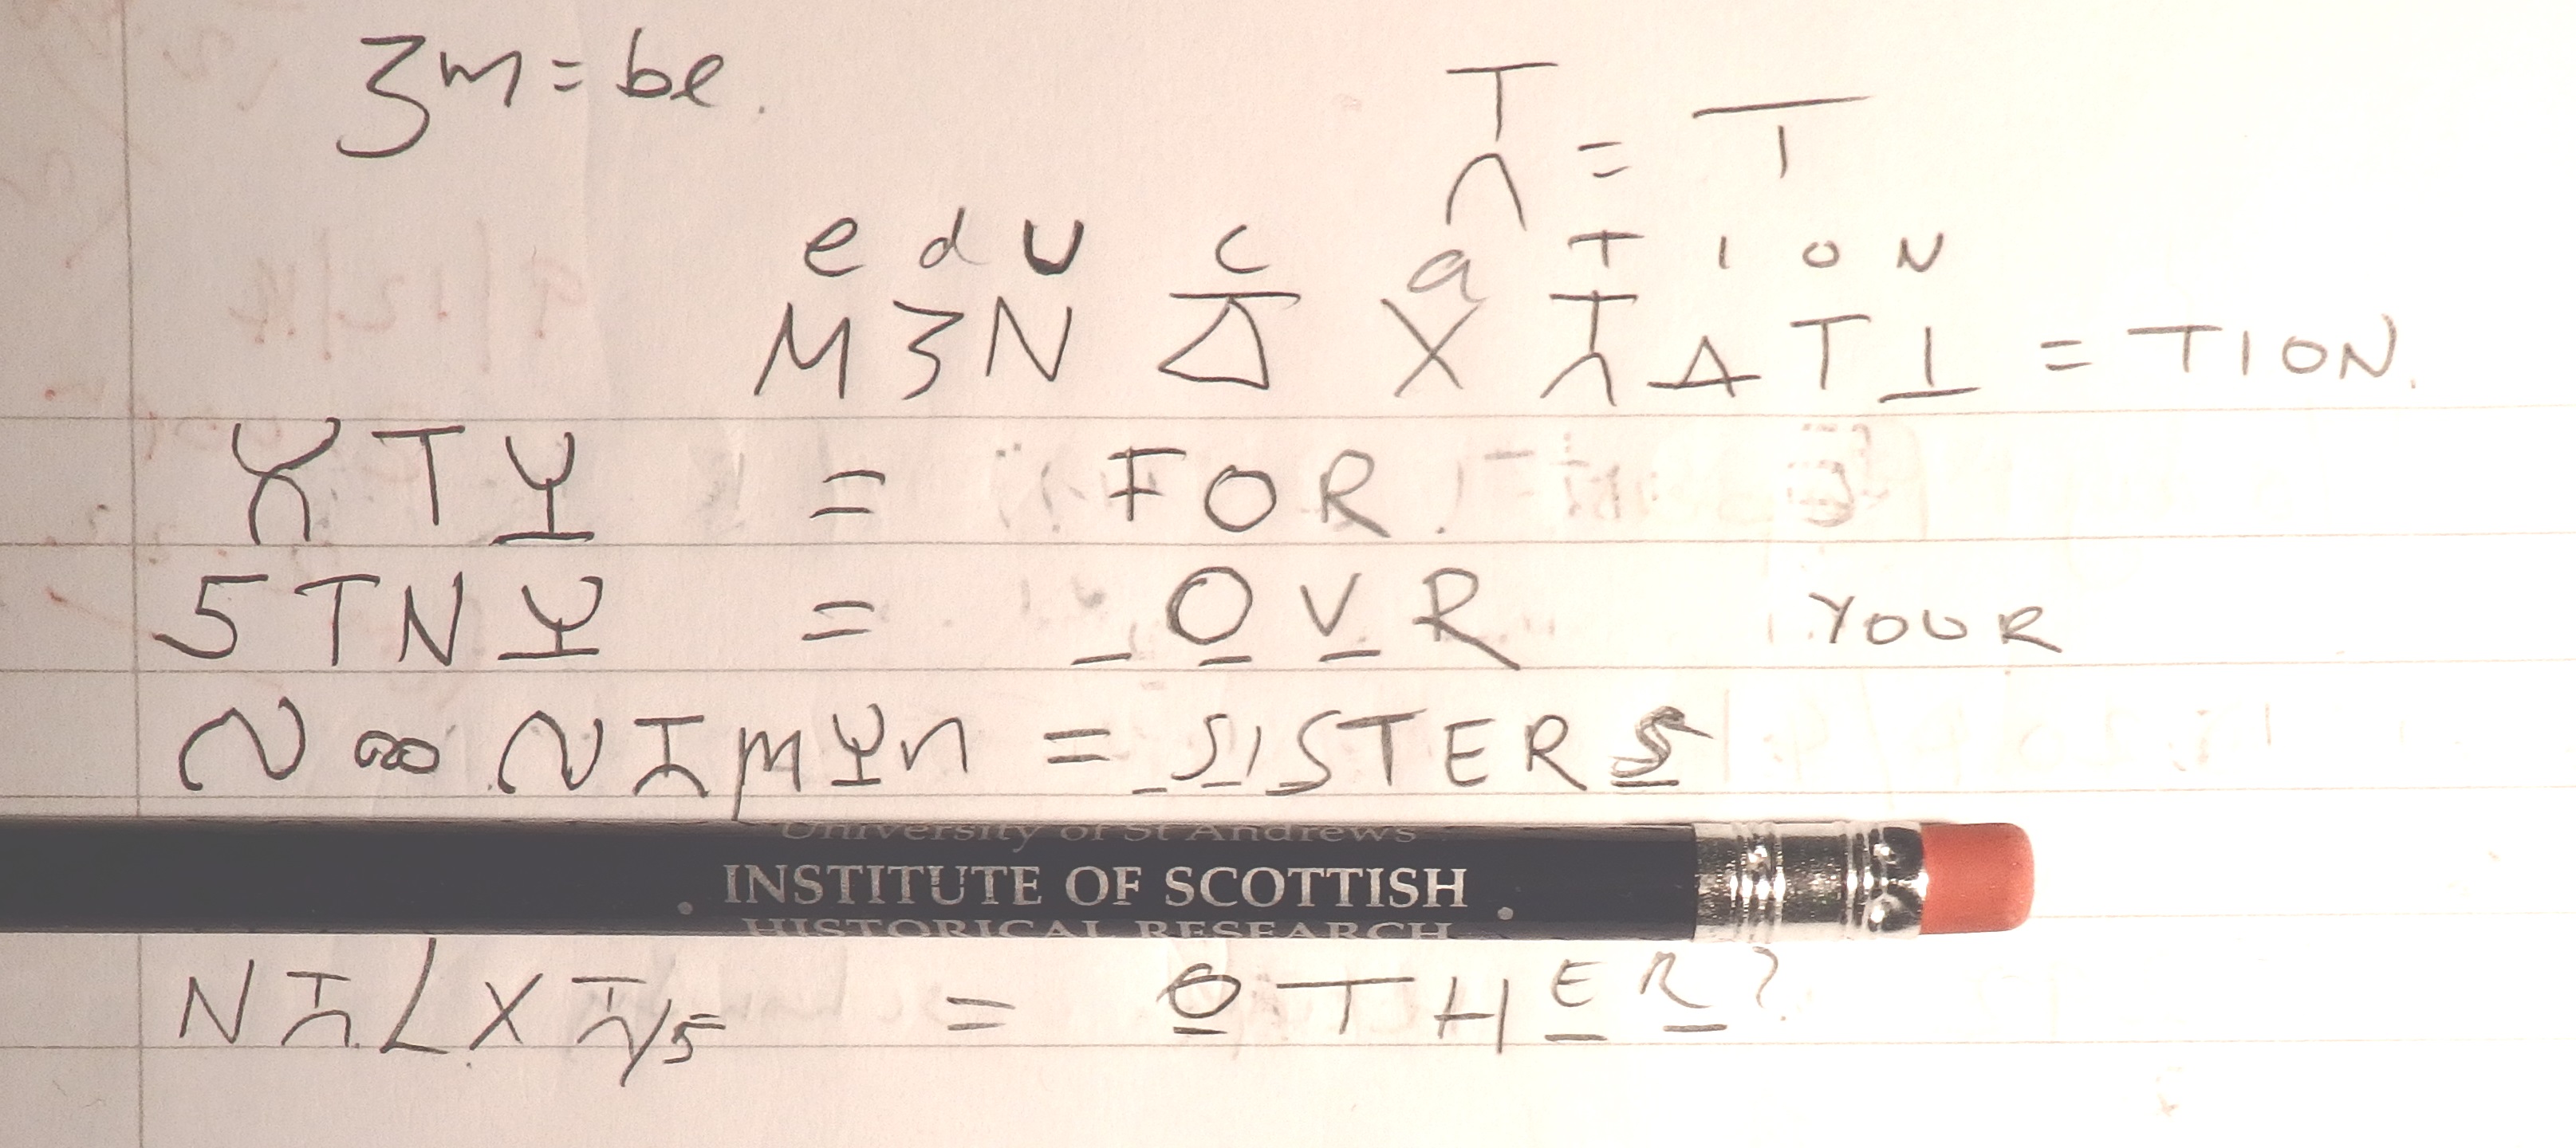 3m = be.
T = T
e d U C a T I O N
M 3 N Δ X T Δ T I = TION.
T Y = FOR
5 T N Y = _ O V R YOUR
N ∞ N I M Y n = SISTERS
University of St Andrews
INSTITUTE OF SCOTTISH
HISTORICAL RESEARCH
N L X /5 = OTHER?